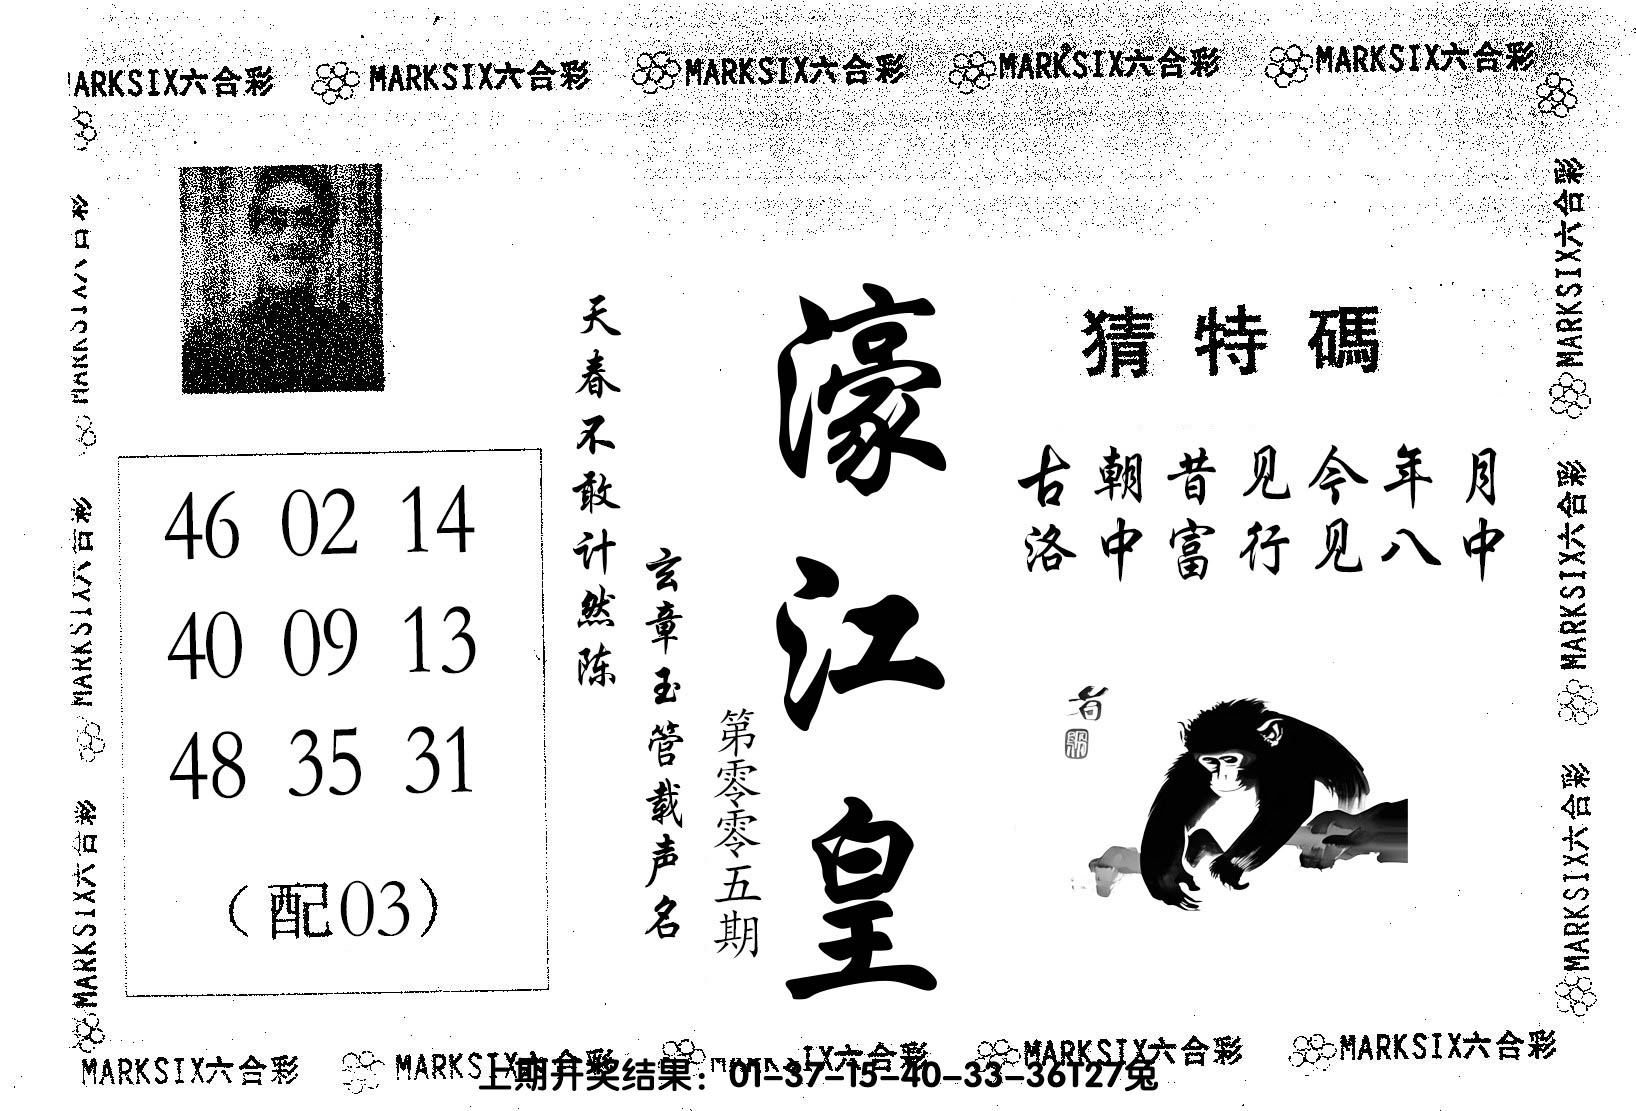 MARKSIX六合彩 MARKSIX六合彩 MARKSIX六合彩 MARKSIX六合彩 MARKSIX六合彩
猜特碼
古朝昔见今年月
洛中富行见八中
濠江皇
第零零五期
玄章玉管载声名
天春不敢计然陈
46 02 14
40 09 13
48 35 31
（配03）
MARKSIX六合彩
MARKSIX六合彩
MARKSIX六合彩
MARKSIX六合彩
MARKSIX六合彩
MARKSIX六合彩
MARKSIX六合彩 MARKSIX六合彩 MARKSIX六合彩 MARKSIX六合彩
上期开奖结果：01-37-15-40-33-36T27兔